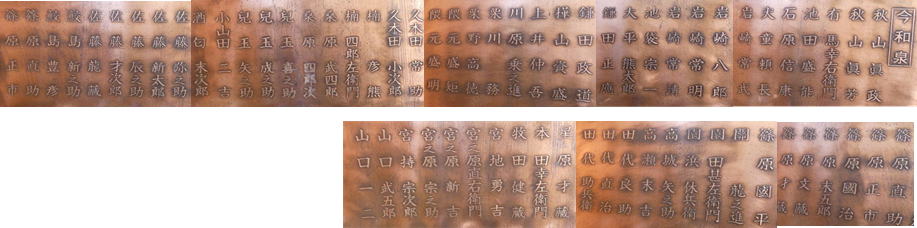 今和泉
秋山眞政
秋山眞芳
有馬幸右衛門
池田盛能
石原信康
大童武長
岩崎常
岩崎八郎
岩崎常明
岩崎常清
池袋宗一
大平熊太郎
鎌田正應
鎌田政道
樺山資盛
上井仲吾
川原乗之進
川務
栗野高徳
隈元盛矩
隈元盛明
久木田常助
久木田小次郎
楠彦熊
楠四郎左衛門
桑原武四郎
桑原四郎次
兒玉喜助
兒玉成之助
兒玉之助
小山田二吉
酒匂末次郎
佐藤弥之助
佐藤新太郎
佐藤辰之助
佐藤才次郎
佐藤龍蔵
鮫島新之助
鮫島豊彦
篠原直助
篠原正市
篠原直助
篠原正市
篠原國治
篠原末五郎
篠原文蔵
篠原才蔵
篠原國平
關龍之進
園田甚左衛門
園浜休兵衛
高城矢之助
高瀬末吉
田代良助
田代直治
田代助兵衛
星原才蔵
本田幸左衛門
牧田健蔵
宮地勇吉
宮之原直右衛門
宮之原新吉
宮之原宗之助
宮持宗次郎
山口武五郎
山口一二